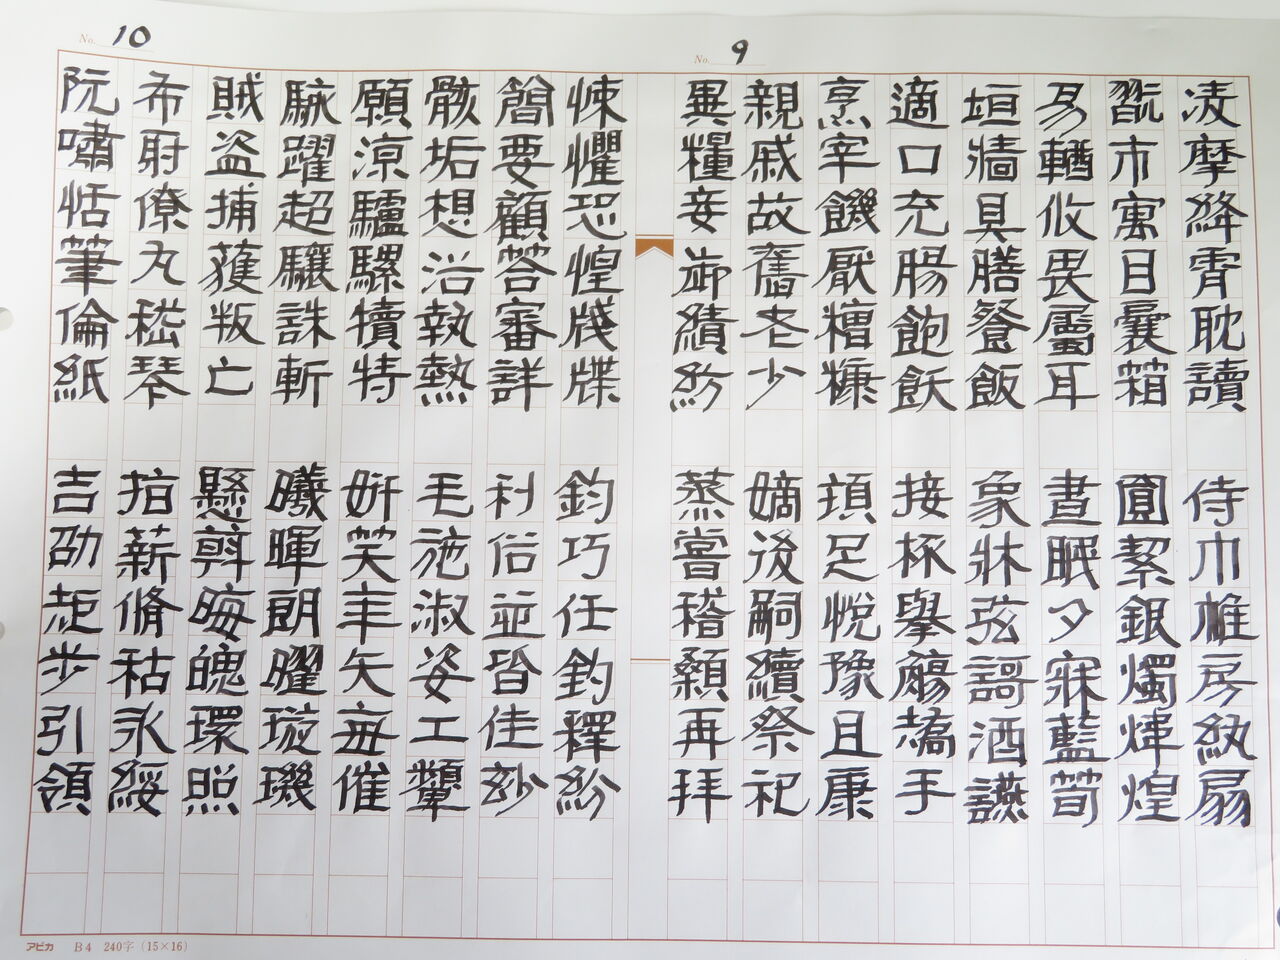 No. 9
凌摩絳霄耽讀
翫市寓目囊箱
易輶攸畏屬耳
垣牆具膳飡飯
適口充腸飽飫
烹宰饑厭糟糠
親戚故舊老少
異糧妾御績紡
侍巾帷房紈扇
圓絜銀燭煒煌
晝眠夕寐藍筍
象牀弦謌酒讌
接杯擧觴矯手
頓足悅豫且康
嫡後嗣續祭祀
蒸嘗稽顙再拜
No. 10
悚懼恐惶牋牒
簡要顧荅審詳
骸垢想浴執熱
願涼驢騾犢特
駭躍超驤誅斬
賊盜捕獲叛亡
布射僚丸嵇琴
阮嘯恬筆倫紙
鈞巧任釣釋紛
利俗並皆佳玅
毛施淑姿工顰
妍笑年矢每催
曦暉朗曜璇璣
懸斡晦魄環照
指薪脩祜永綏
吉劭矩步引領
アピカ B4 240字(15×16)